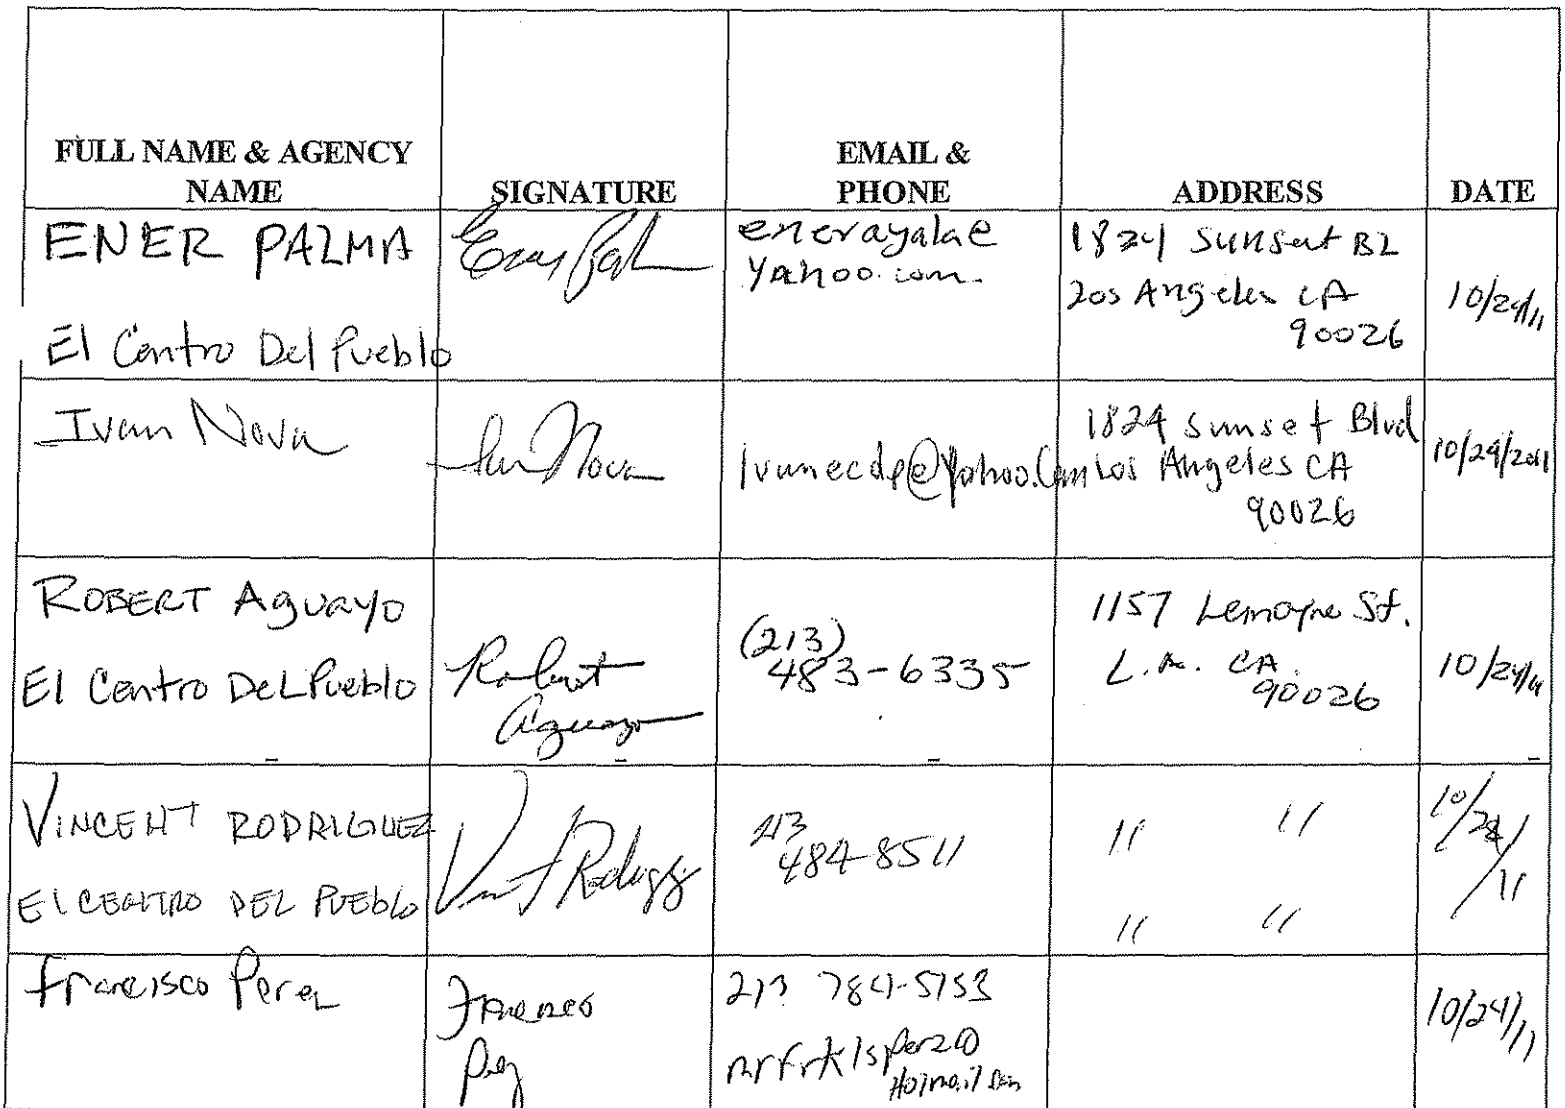 FULL NAME & AGENCY
NAME
SIGNATURE
EMAIL &
PHONE
ADDRESS
DATE
ENER PALMA
El Centro Del Pueblo
enerayala@
Yahoo.com.
1824 Sunset BL
Los Angeles CA
90026
10/24/11
Ivan Nova
Ivan Nova
Ivanecdp@Yahoo.Com
1824 Sunset Blvd
Los Angeles CA
90026
10/24/2011
ROBERT Aguayo
El Centro Del Pueblo
Robert
Aguayo
(213)
483-6335
1157 Lemoyne St.
L.A. CA.
90026
10/24/11
VINCENT RODRIGUEZ
El CENTRO DEL PUEBlo
Vincent Rodriguez
213
484-8511
" "
" "
10/24/11
Francisco Perez
Francisco
Perez
213 784-5753
Hotmail.com
10/24/11